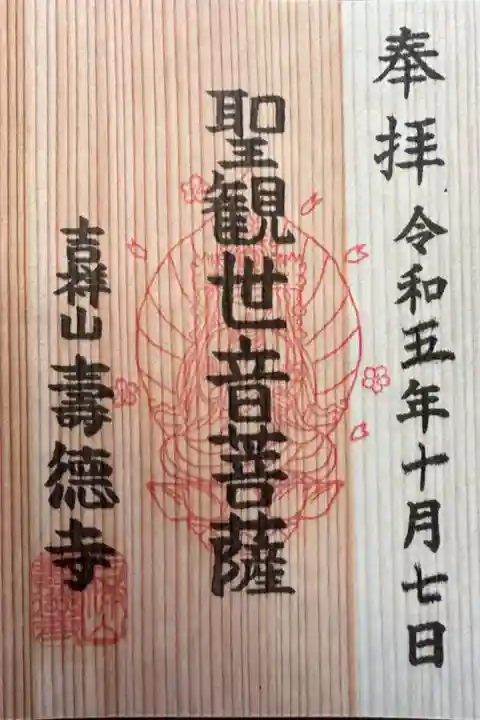 奉拝 令和五年十月七日
聖観世音菩薩
吉祥山 壽德寺